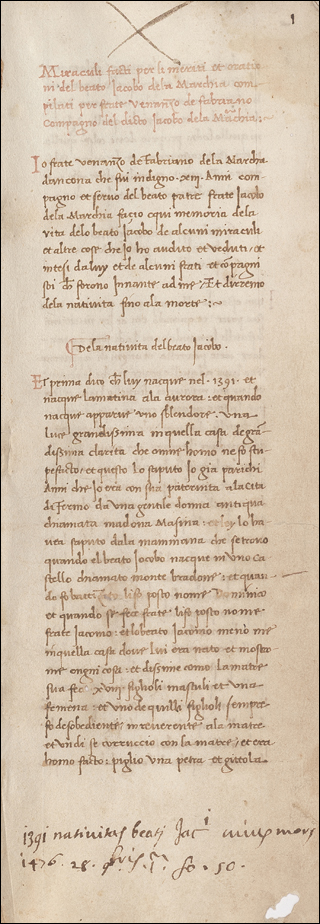 1
Miraculi facti per li meriti et oratio
ni del beato Jacobo de la Marchia com
pilati per frate Venanzo de fabriano
Compagno del dicto Jacobo dela Marchia:~
Io frate venanzo de fabriano de la Marcha
dancona che fui indigno .xııj. Anni com-
pagno et servo del beato patre frate Jacobo
dela Marchia facio cqui memoria dela
vita delo beato Jacobo de alcuni miraculi
et altre cose che Io ho auduto et veduti, et
intesi da luy et de alcuni frati et compagni
soi che forono Innante ad me, Et diremo
dela nativita fino ala morte:~
De la nativita del beato Jacobo.
Et prima dico che luy nacque nel .1391. et
nacque la matina ala aurora: et quando
nacque apparue uno splendore. Una
luce grandissima in quella casa de gran-
dissima clarita che omne homo ne fo stu-
pefacto: et questo lo saputo Io gia parichi
Anni che Io era con sua paternita ala cita
de Fermo da una gentile donna antiqua
chiamata madona Masina: et ley lo ha-
vea saputo dala mammana che se trovo
quando el beato Jocobo nacque in uno ca-
stello chiamato monte bradone: et quan-
do fo batti li fo posto nome Dominico
et quando se fece frate li fo posto nome
frate Jacomo: et lo beato Jacomo menò me
in quella casa dove lui era nato et mostro
me ongni cosa: et dissime como la matre
sua fece .xvııj. figlioli masculi et una
femena: et uno de quilli figlioli sempre
fo desobediente, inreuerente ala matre
et un di se corruccio con la matre, et era
homo facto: piglio una petra et gitola
1391 nativitas beati Jac i cuius mors
1476. 28. fo. 50.